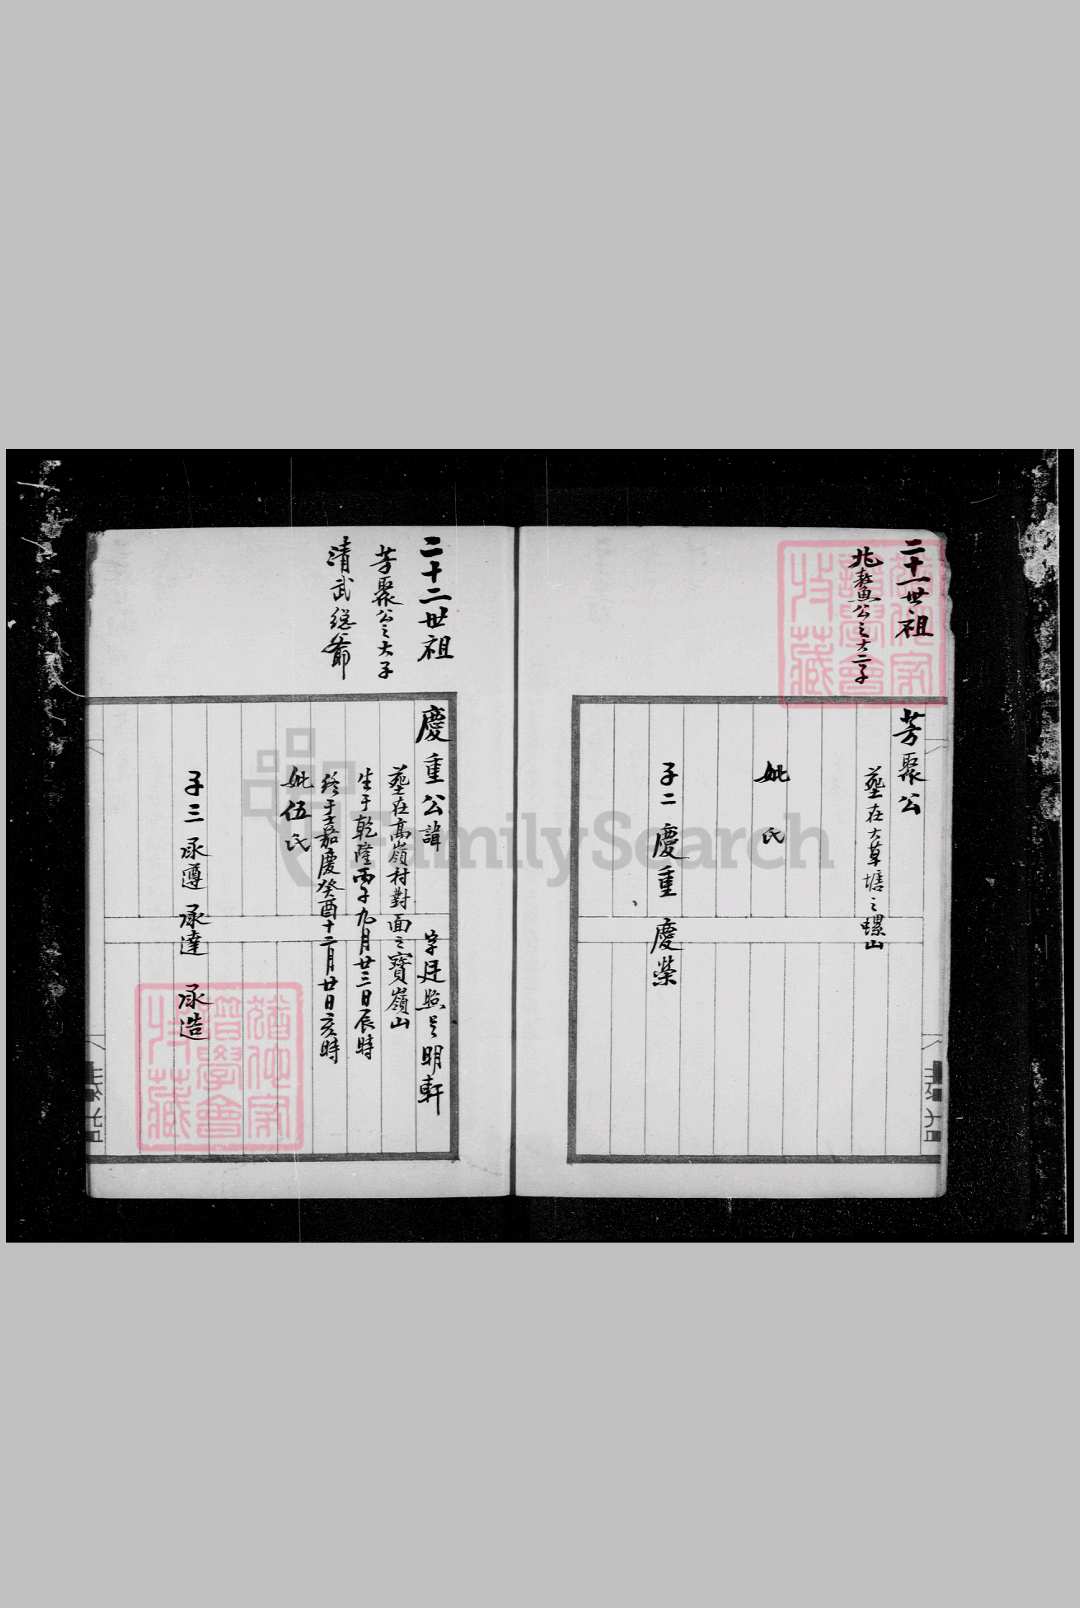 二十一世祖
兆鰲公之大二子
芳聚公
塟在大草塘之螺山
妣 氏
子二 慶重 慶榮
二十二世祖
芳聚公之大子
清武總爺
慶重公諱 字廷熙号明軒
塟在高嶺村對面之寶嶺山
生于乾隆丙子九月廿三日辰時
終于嘉慶癸酉十二月廿日亥時
妣伍氏
子三 承遵 承達 承造
FamilySearch